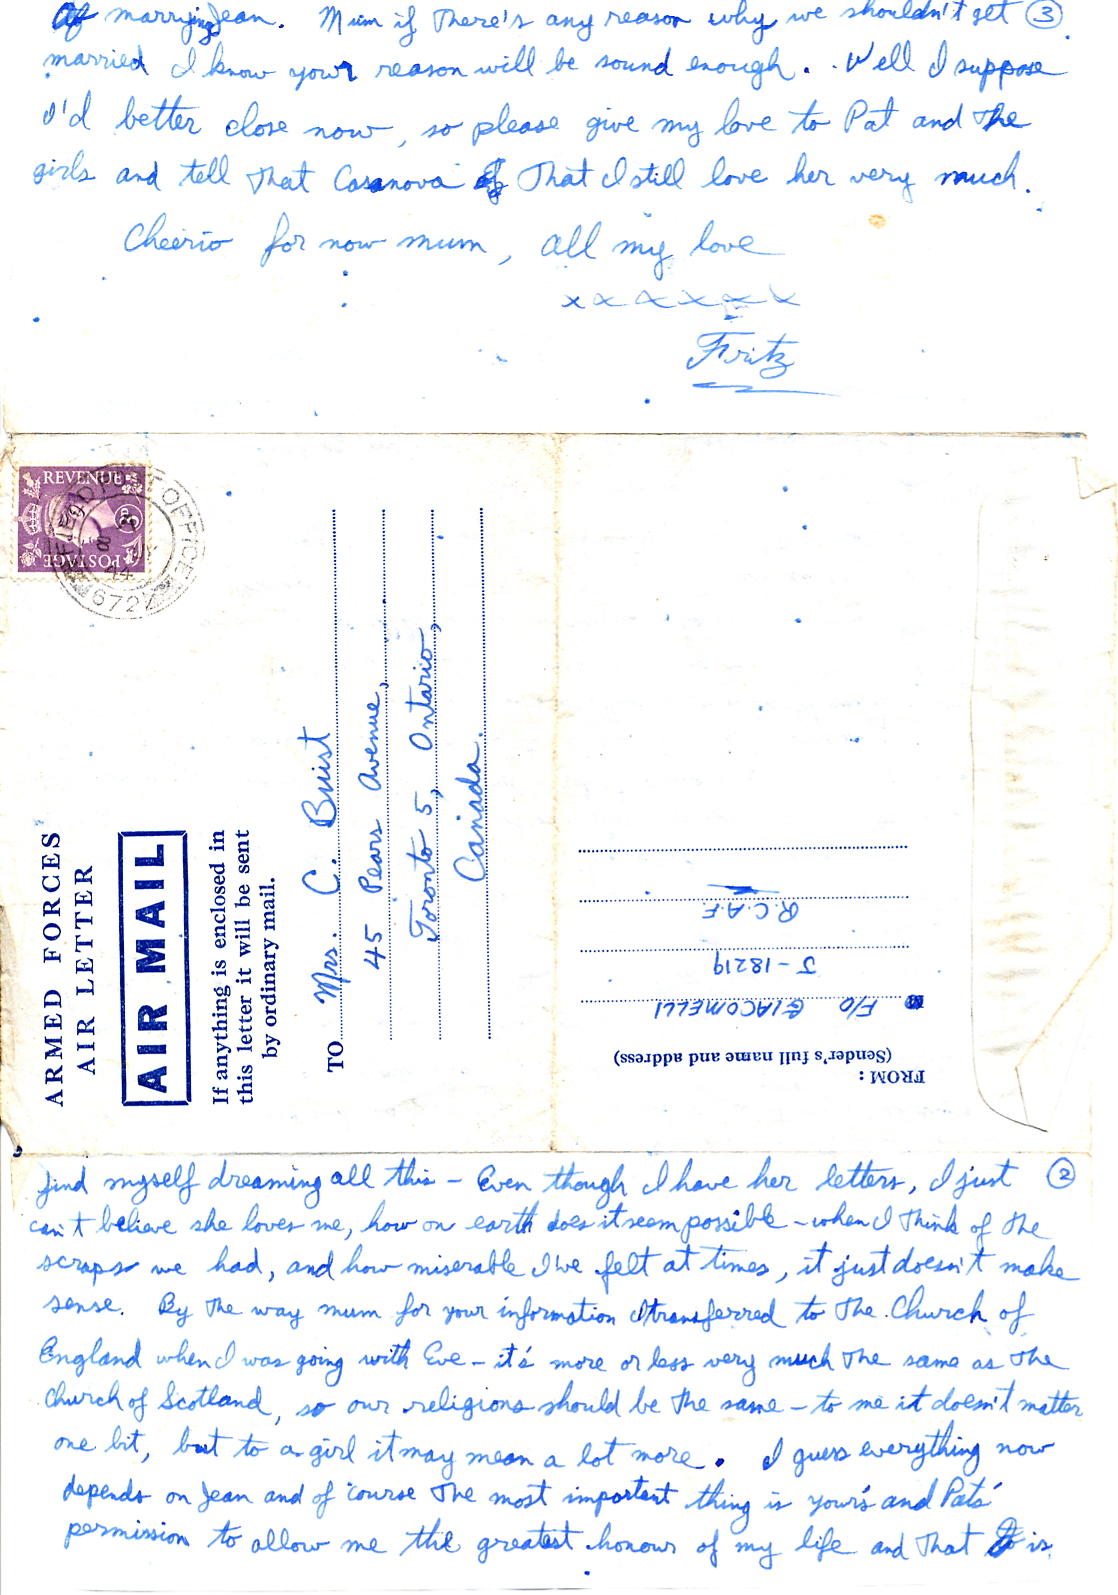 of marrying Jean. Mum if there's any reason why we shouldn't get 3
married I know your reason will be sound enough. . Well I suppose
I'd better close now, so please give my love to Pat and the
girls and tell that Casanova that I still love her very much.
Cheerio for now mum, all my love
x x x x x x x
Fritz
REVENUE
POSTAGE
3D
FIELD POST OFFICE
44
672
ARMED FORCES'
AIR LETTER
AIR MAIL
If anything is enclosed in
this letter it will be sent
by ordinary mail.
TO Mrs. C. Buist
45 Pears Avenue,
Toronto 5, Ontario,
Canada.
FROM:
(Sender's full name and address)
F/O GIACOMELLI
J-18219
R.C.A.F.
find myself dreaming all this - Even though I have her letters, I just 2
can't believe she loves me, how on earth does it seem possible - when I think of the
scraps we had, and how miserable I've felt at times, it just doesn't make
sense. By the way mum for your information I transferred to the Church of
England when I was going with Eve - it's more or less very much the same as the
Church of Scotland, so our religions should be the same - to me it doesn't matter
one bit, but to a girl it may mean a lot more. I guess everything now
depends on Jean and of course the most important thing is your's and Pats'
permission to allow me the greatest honour of my life and that is